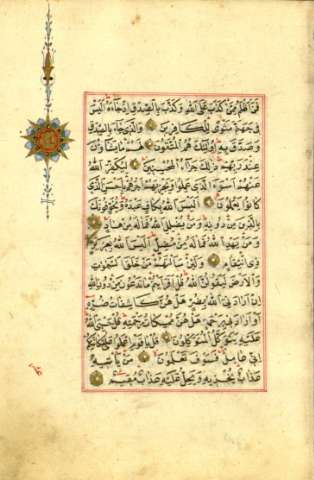 فمن اظلم ممن كذب على الله وكذب بالصدق اذ جاءه اليس
في جهنم مثوى للكافرين والذي جاء بالصدق
وصدق به اولئك هم المتقون لهم ما يشاؤن
عند ربهم ذلك جزاء المحسنين ليكفر الله
عنهم اسوء الذي عملوا ويجزيهم اجرهم باحسن الذي
كانوا يعملون اليس الله بكاف عبده ويخوفونك
بالذين من دونه ومن يضلل الله فما له من هاد
ومن يهد الله فما له من مضل اليس الله بعزيز
ذي انتقام ولئن سالتهم من خلق السموات
والارض ليقولن الله قل افرايتم ما تدعون من دون الله
ان ارادني الله بضر هل هن كاشفات ضره
او ارادني برحمة هل هن ممسكات رحمته قل حسبي الله
عليه يتوكل المتوكلون قل يا قوم اعملوا على مكانتكم
اني عامل فسوف تعلمون من ياتيه
عذاب يخزيه ويحل عليه عذاب مقيم